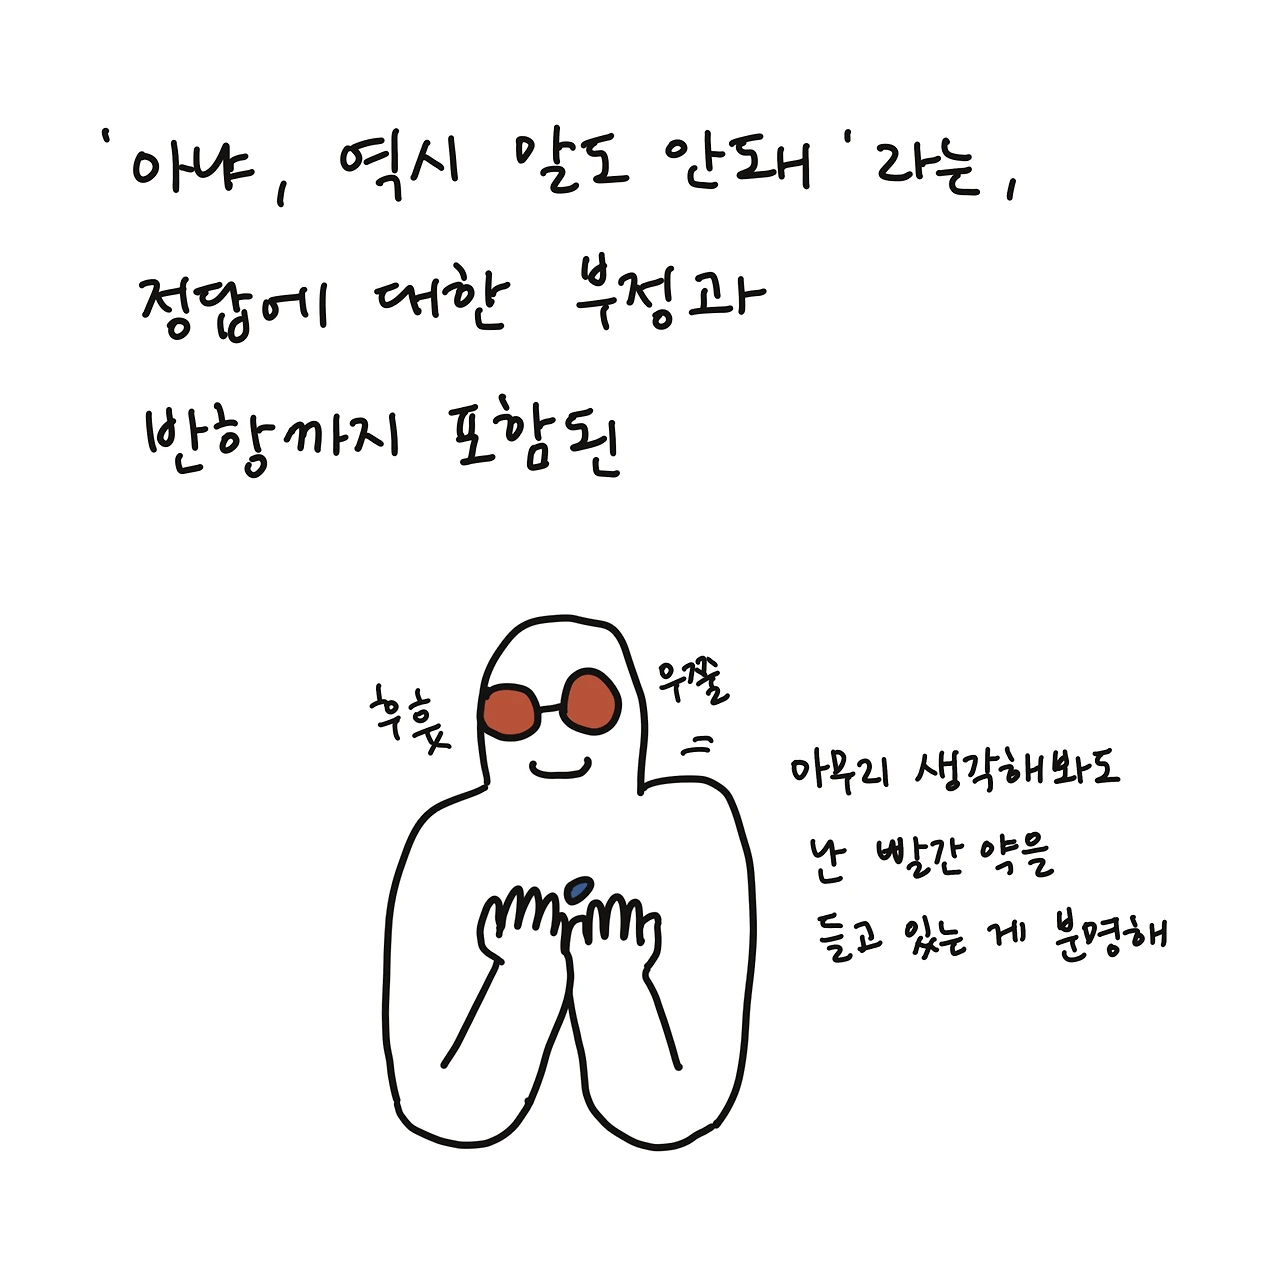 '아냐, 역시 말도 안돼' 라는,
정답에 대한 부정과
반항까지 포함된
후훗
우쭐
아무리 생각해봐도
난 빨간 약을
들고 있는 게 분명해